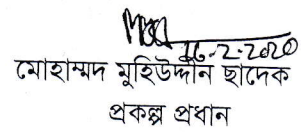 16-2-2020
মোহাম্মদ মুহিউদ্দীন ছাদেক
প্রকল্প প্রধান